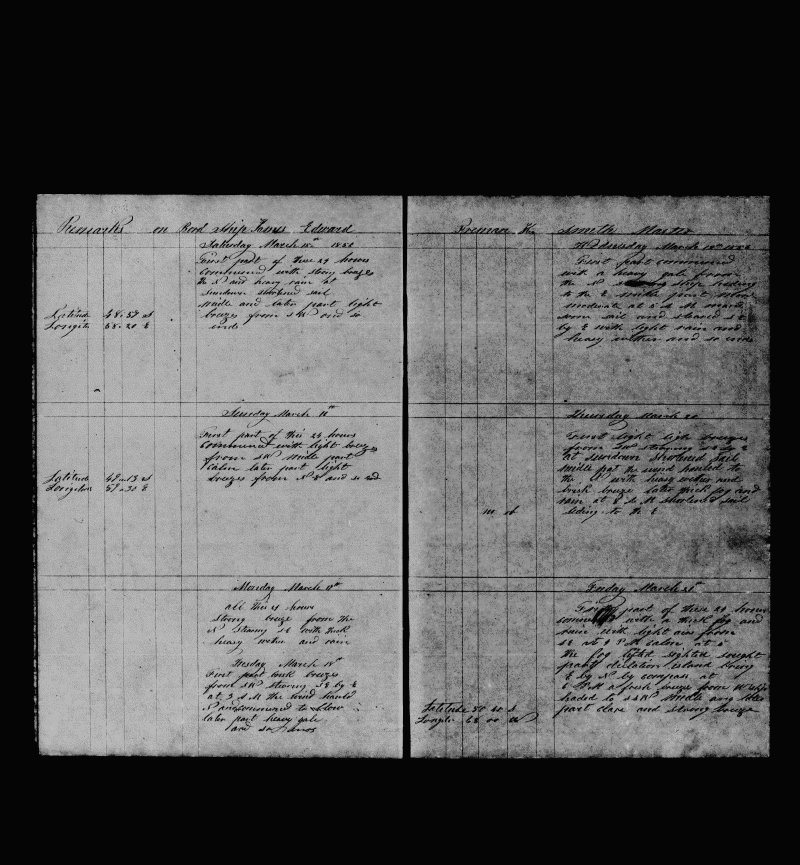 Remarks on Bord Ship James Edward
Saturday March 15th 1851
First part of these 24 hours
Commenced with strong breezes
the N and heavy rain at
sundown shortened sail
midle and later part light
breezes from SW and so
ends
Latitude 48-57 S
Longitu 58-20 E
Sunday March 16th
First part of this 24 hours
Commenced with light breezes
from SW midle part
Calm later part light
breezes from N & and so end
Latitude 49-13 S
Longitu 59-30 E
Monday March 17th
all these 24 hours
Strong breeze from the
N Stearing SE with thick
heavy wether and rain
Tuesday March 18th
First part brisk breezes
from SW Stearing SE by E
at 3 A M the wind hauled
N and commenced to blow
later part heavy gale
and so ends
Freeman H. Smith Master
Wednesday March 19th
First part commenced
with a heavy gale from
the N ship heading
to the E midle part more
moderate at 6 A M made
some sail and steared SE
by E with light rain and
heavy wether and so ends
Thursday March 20
First light breezes
from
at sundown shortened sail
midle part the wind hauled to
the N with heavy wether and
brisk breeze later thick fog and
rain at 8 A M shortened sail
heding to the E
no ob
Friday March 21st
First part of these 24 hours
commenced with a thick fog and
rain with light airs from
SE at 9 P M calm at 5
the fog lifted sighted
Desolation island bering
E by N by compass at
6 A M a fresh breeze from W
heded to SSW midle and later
part clare and strong breeze
Latitude 50 40 S
Longitu 68 00 E